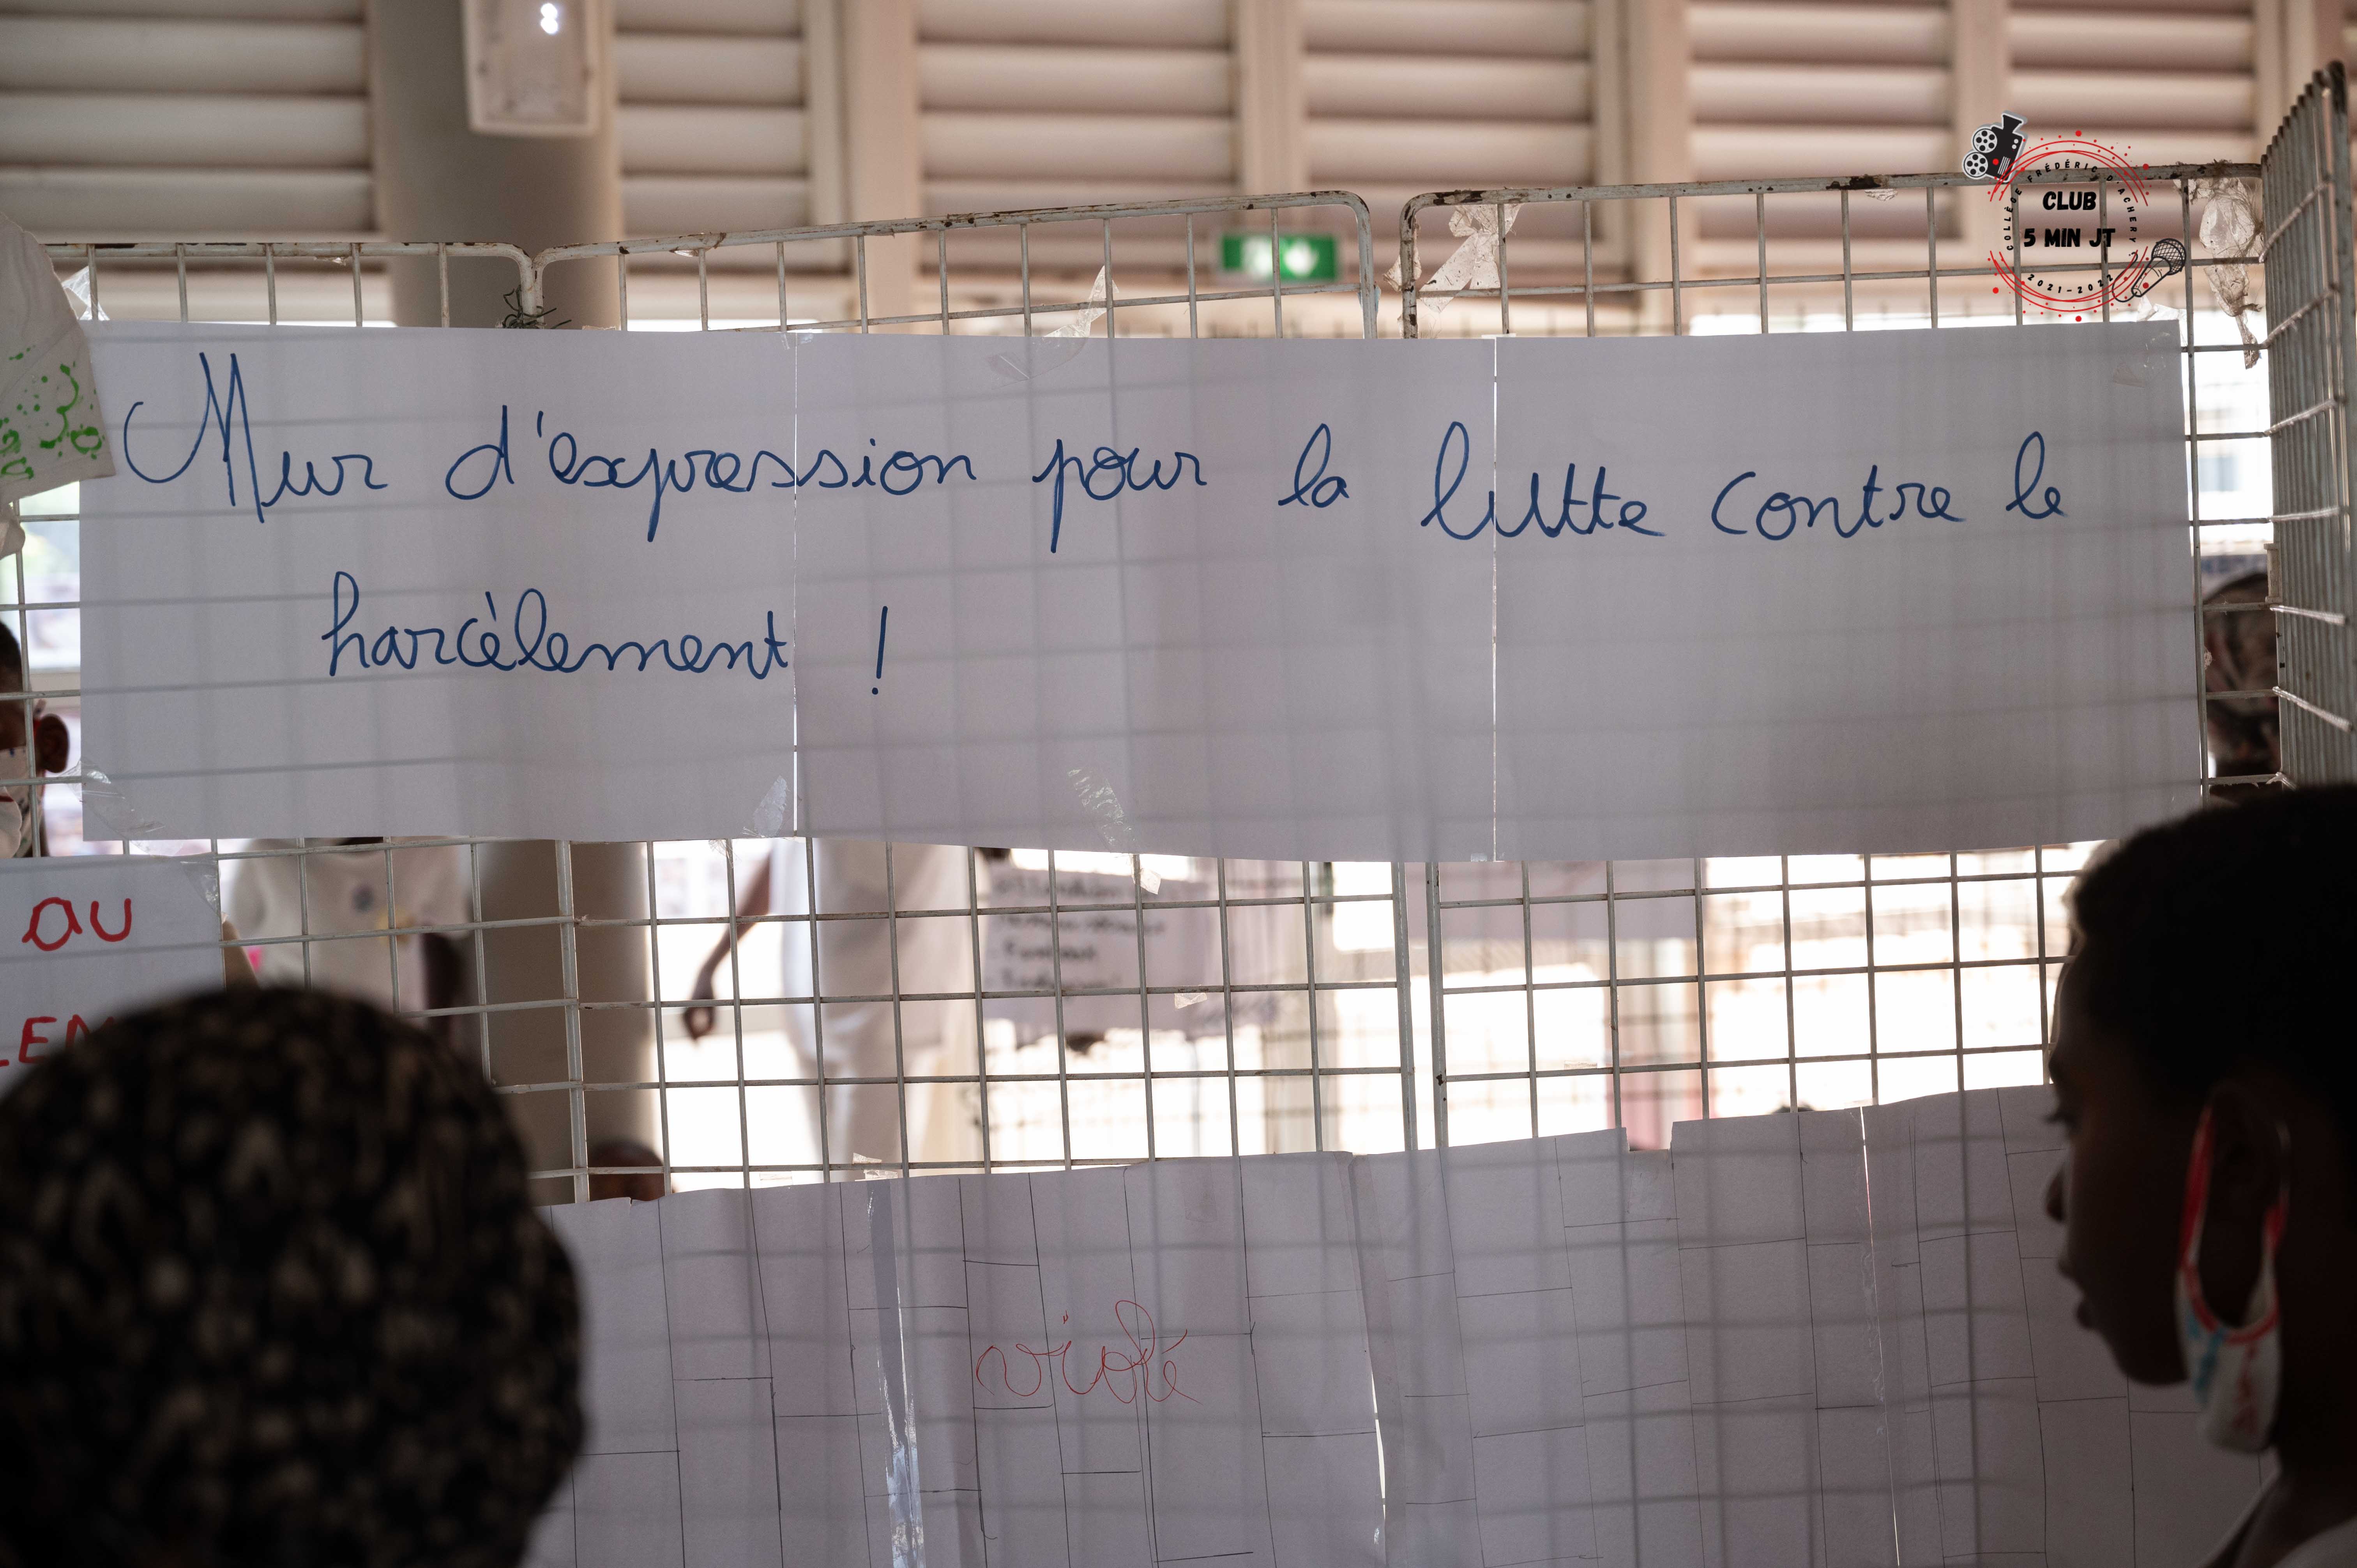 COLLÈGE FRÉDÉRIC D'ACHERY
CLUB
5 MIN JT
2021-2022
Mur d'expression pour la lutte contre le
harcèlement !
AU
violé